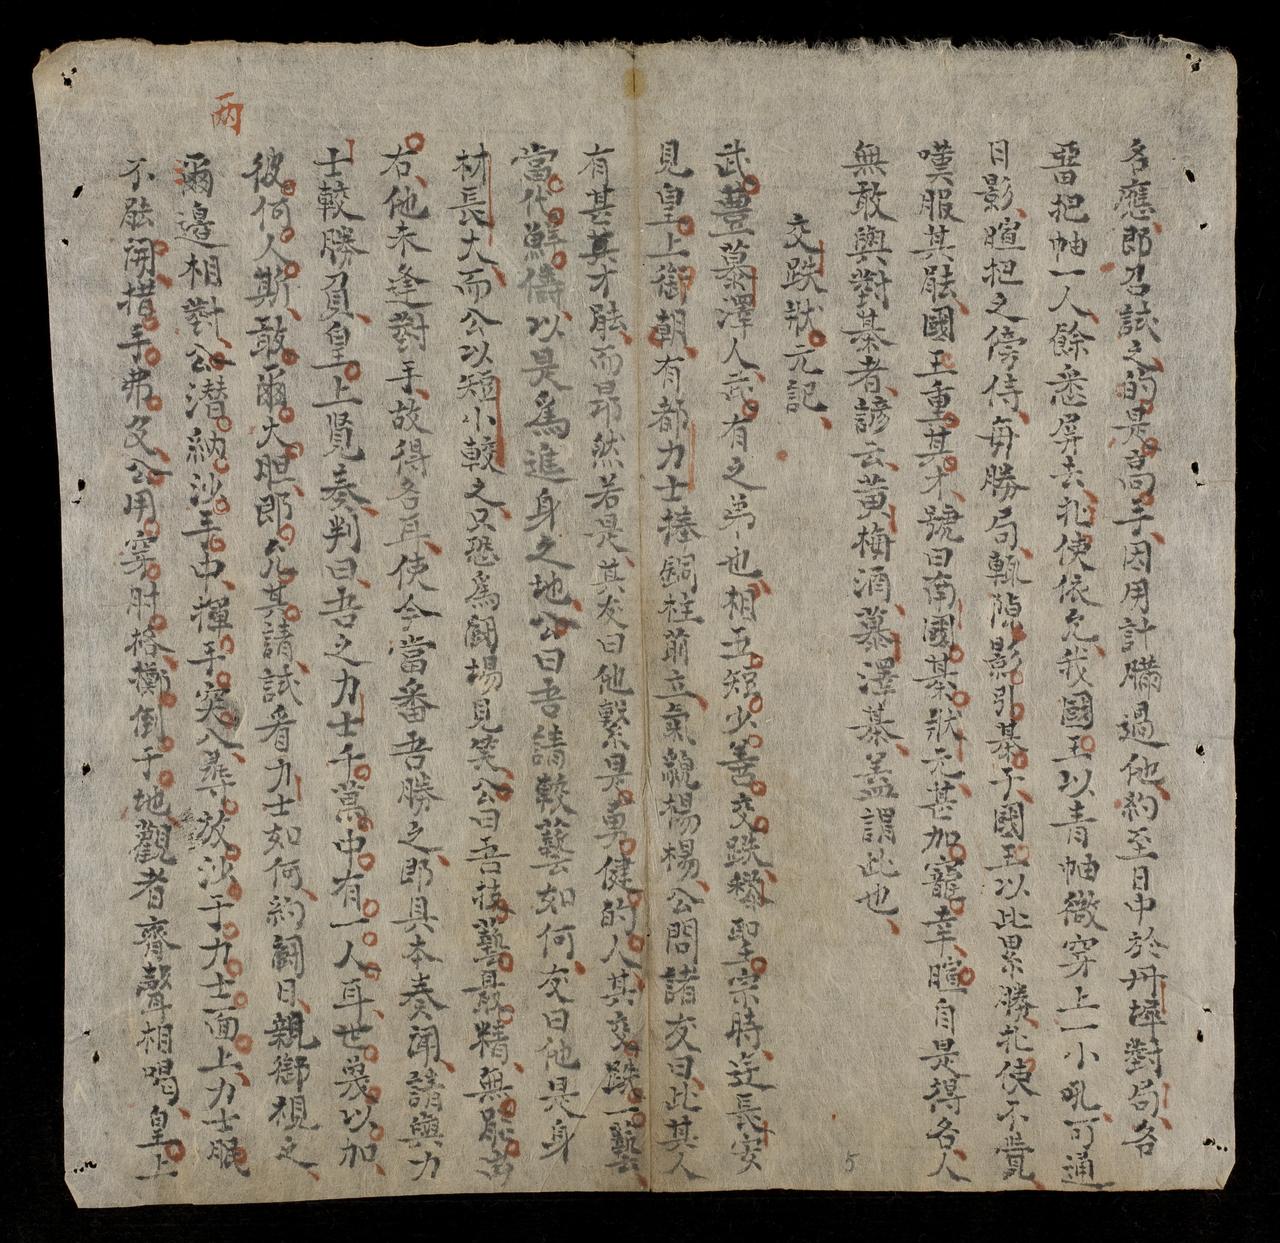 名應郎召試之的是高手因用計購過他約至日中於丹墀對局各
畱把帕一人餘悉屏去北使依允我國王以青帕微穿上一小吼可通
日影暄把之傍侍每勝局輒隙影引棊于國王以此累勝北使不覺
嘆服其能國王重其才號曰南國棊狀元甚加寵幸暄自是得名人
無敢與對棊者諺云黄梅酒慕澤棊盖謂此也
交跌狀元記
武豊慕澤人武有之弟也相五短少善交跌黎聖宗時遊長安
見皇上御朝有都力士捧銅柱前立氣貌楊楊公問諸友曰此其人
有甚其才能而昻然若是其友曰他繫是勇健的人其交跌一藝
當代鮮儔以是爲進身之地公曰吾請較藝如何友曰他是身
材長大而公以短小較之只恐爲鬪場見笑公曰吾技藝最精無能出
右他未逢對手故得名耳使今當番吾勝之郎具本奏聞請與力
士較勝負皇上覽奏判曰吾之力士千萬中有一人耳世蔑以加
彼何人斯敢爾大胆郎允其請試看力士如何約鬪日親御視之
兩
爾邊相對公潜納沙手中揮手突入尋放沙于力士面上力士眠
不能開措手弗及公用穿肘格擲倒于地觀者齊聲相喝皇上
5